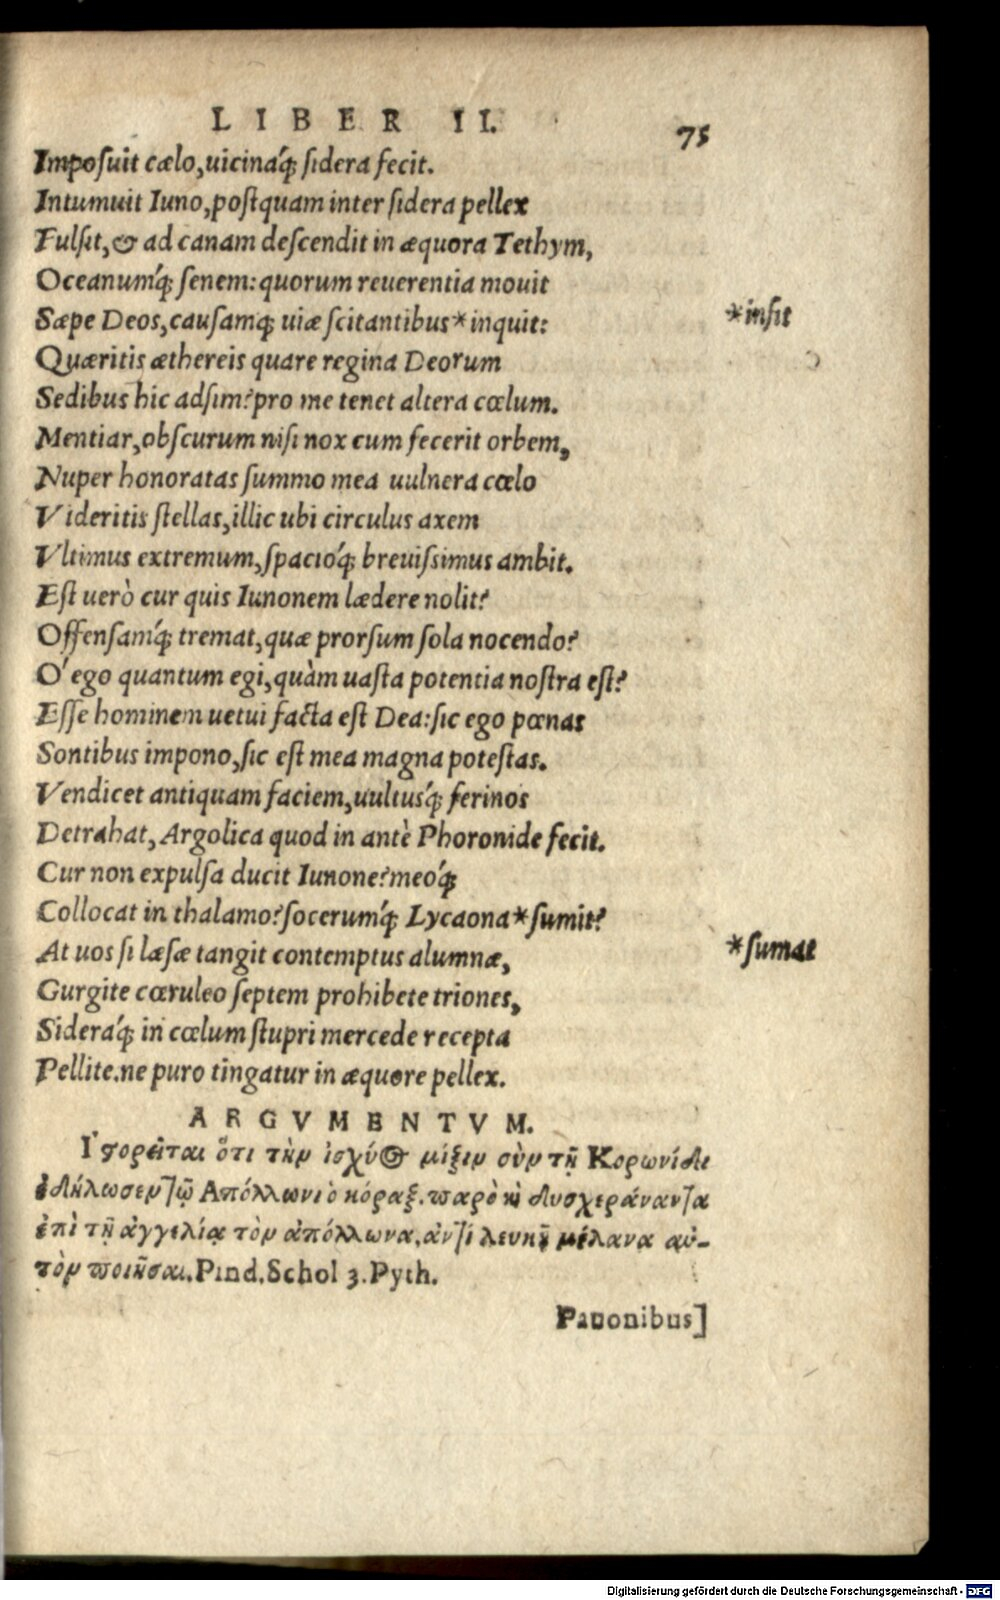 LIBER II. 75
Imposuit cælo, uicináq; sidera fecit.
Intumuit Iuno, postquam inter sidera pellex
Fulsit, & ad canam descendit in æquora Tethym,
Oceanumq́; senem: quorum reuerentia mouit
Sæpe Deos, causamq; uiæ scitantibus* inquit: *insit
Quæritis æthereis quare regina Deorum
Sedibus hic adsim? pro me tenet altera cœlum.
Mentiar, obscurum nisi nox cum fecerit orbem,
Nuper honoratas summo mea uulnera cœlo
Videritis stellas, illic ubi circulus axem
Vltimus extremum, spacióq; breuissimus ambit.
Est uerò cur quis Iunonem lædere nolit?
Offensamq́; tremat, quæ prorsum sola nocendo?
O' ego quantum egi, quàm uasta potentia nostra est?
Esse hominem uetui facta est Dea: sic ego pœnas
Sontibus impono, sic est mea magna potestas.
Vendicet antiquam faciem, uultusq́; ferinos
Detrahat, Argolica quod in antè Phoronide fecit.
Cur non expulsa ducit Iunone? meóq;
Collocat in thalamo? socerumq́; Lycaona* sumit? *sumat
At uos si læsæ tangit contemptus alumnæ,
Gurgite cœruleo septem prohibete triones,
Sideráq; in cœlum stupri mercede recepta
Pellite. ne puro tingatur in æquore pellex.
ARGVMENTVM.
Ἱστορεῖται ὅτι τὴν ἰσχύος μίξιν σὺν τῇ Κορωνίδι
ἐδήλωσεν τῷ Ἀπόλλωνι ὁ κόραξ. παρὸ καὶ δυσχεράναντα
ἐπὶ τῇ ἀγγελίᾳ τὸν ἀπόλλωνα, ἀντὶ λευκοῦ μέλανα αὐ-
τὸν ποιῆσαι. Pind. Schol 3. Pyth.
Pauonibus]
Digitalisierung gefördert durch die Deutsche Forschungsgemeinschaft - DFG